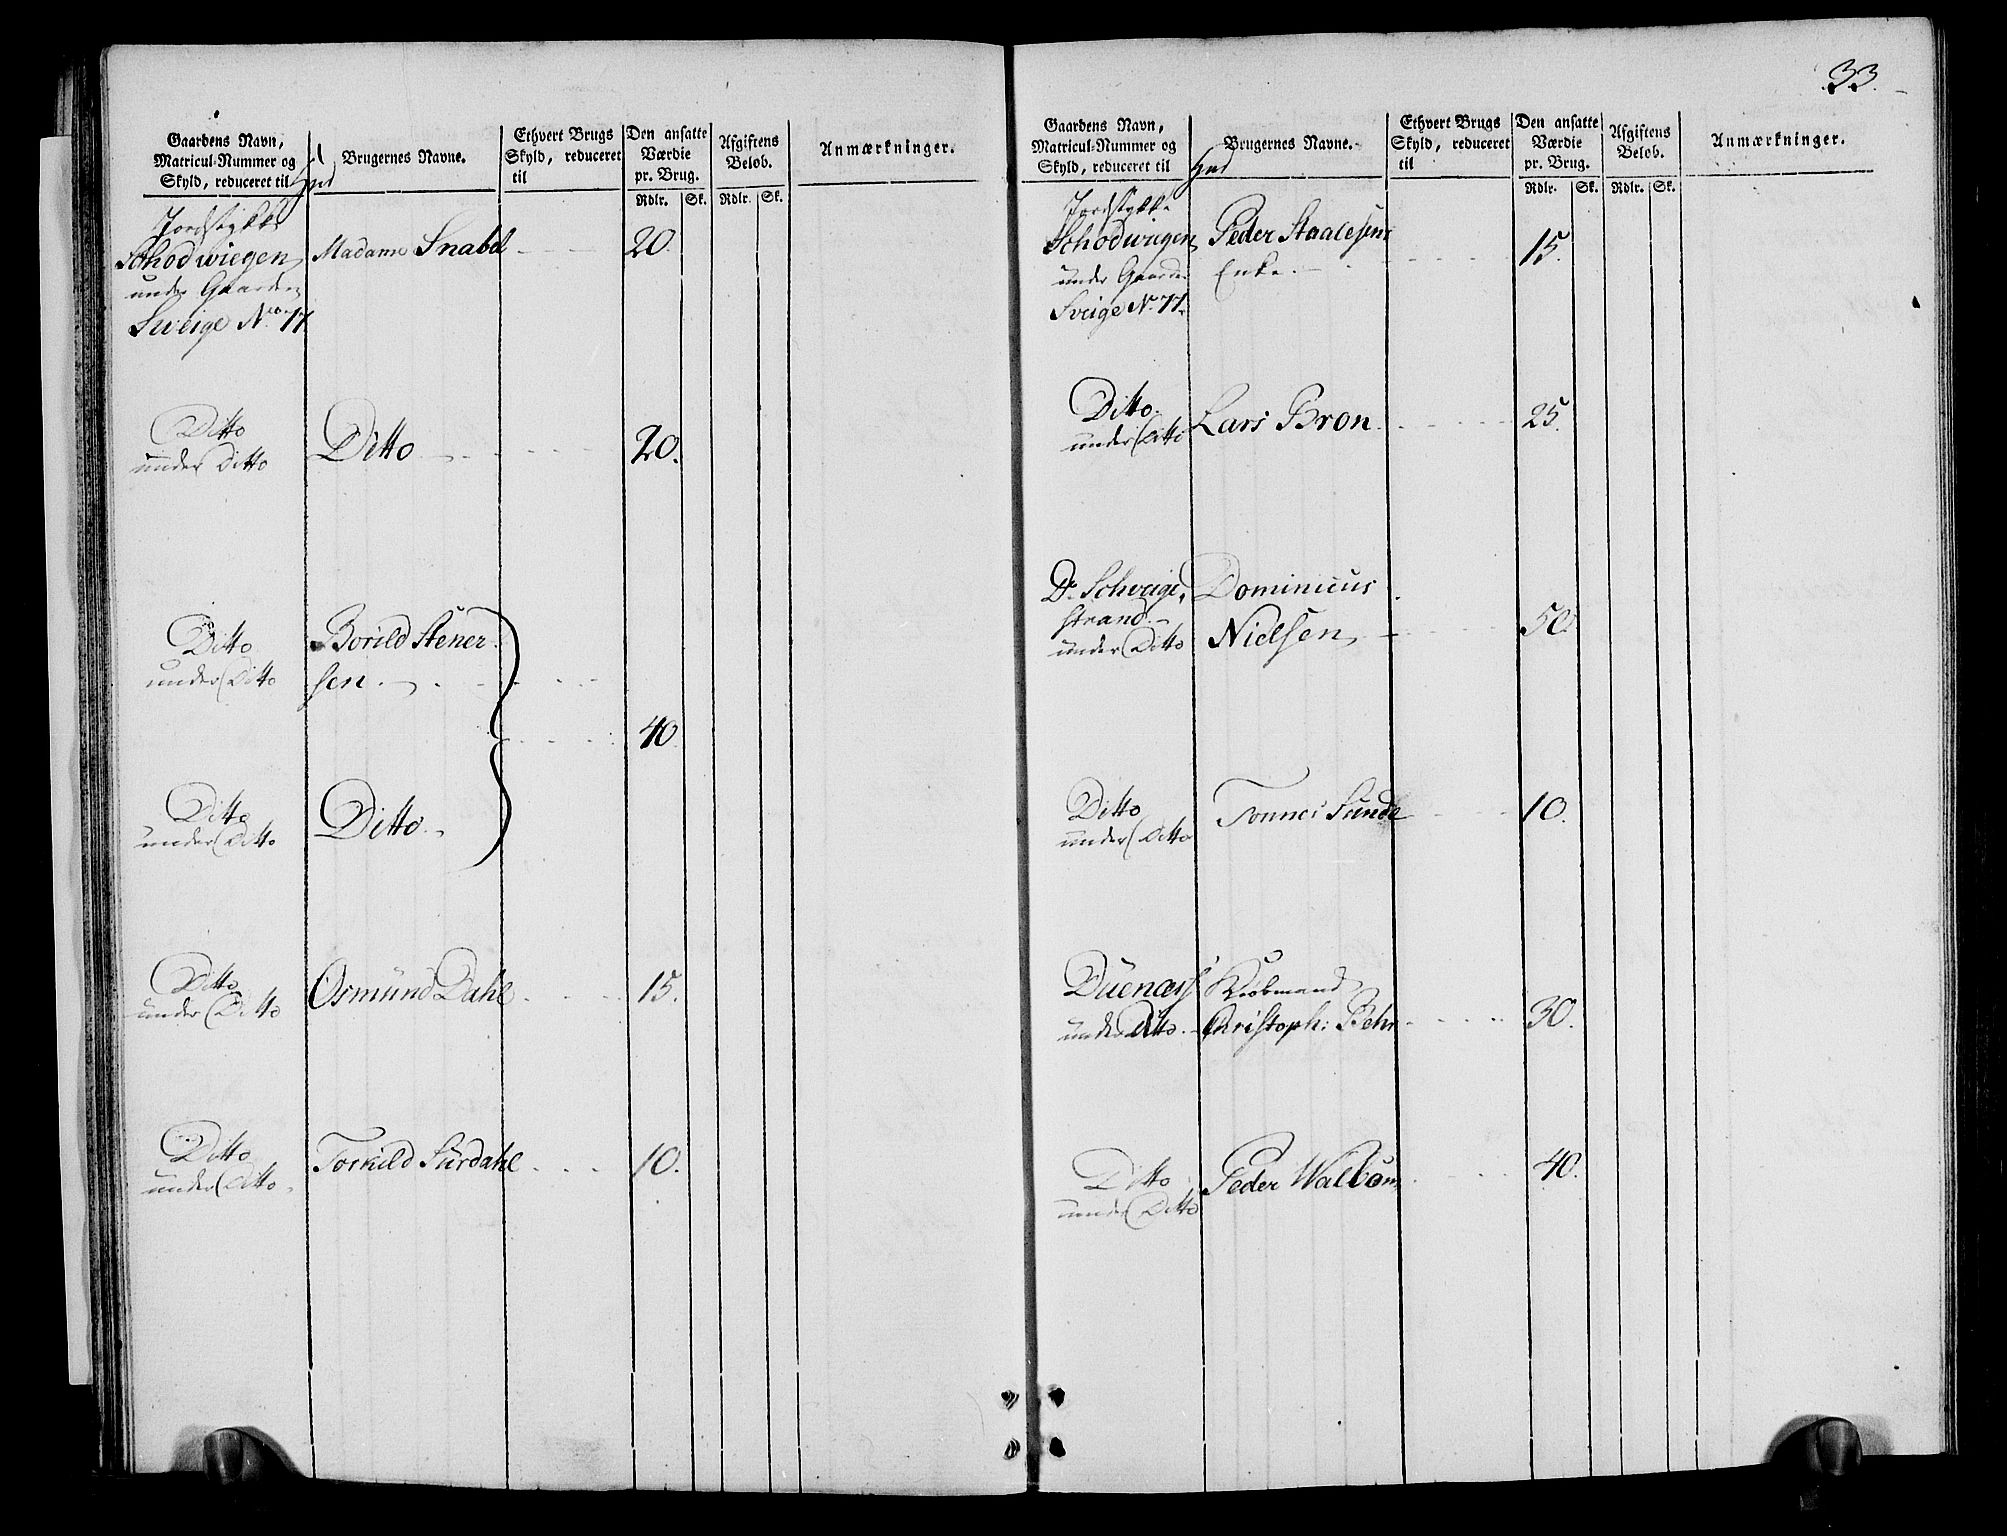 Gaardens Navn,
Matricul-Nummer og
Skyld, reduceret til
Brugernes Navne.
Ethvert Brugs
Skyld, reduceret
til
Den ansatte
Værdie
pr. Brug.
Afgiftens
Beløb.
Anmærkninger.
Rdlr. Sk. Rdlr. Sk.
Jordstykke
Schodwiegen Madame Snabel 20.
under Gaarden
Sveige No. 77
Ditto Ditto 20.
under Ditto
Ditto Borild Stener-
under Ditto sen.
40.
Ditto Ditto.
under Ditto
Ditto Osmund Dahl 15.
under Ditto
Ditto Torkild Surdahl 10.
under Ditto
33.
Gaardens Navn,
Matricul-Nummer og
Skyld, reduceret til
Brugernes Navne.
Ethvert Brugs
Skyld, reduceret
til
Den ansatte
Værdie
pr. Brug.
Afgiftens
Beløb.
Anmærkninger.
Rdlr. Sk. Rdlr. Sk.
Jordstykke
Schodwiegen Peder Staalesens 15.
under Gaarden Enke.
Sveige No. 77.
Ditto Lars Bron 25.
under Ditto
Do. Schveige- Dominicus
strand Nielsen 50.
under Ditto
Ditto Tonnes Sunde 10.
under Ditto
Duenæss Kiøbmand
under Ditto Christoph: Behr 30.
Ditto Peder Walbom 40.
under Ditto